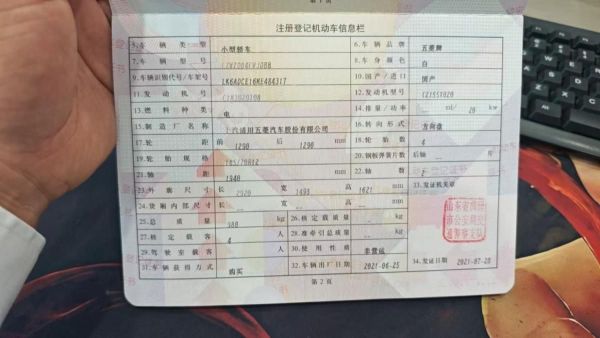 注册登记机动车信息栏
5.车辆类型 小型轿车 6.车辆品牌 五菱牌
7.车辆型号 8.车身颜色 白
9.车辆识别代号/车架号 LK6ADCE16ME484317 10.国产/进口 国产
11.发动机号 12.发动机型号 TZ155T020
13.燃料种类 电 14.排量/功率 ml/ 20 kw
15.制造厂名称 上汽通用五菱汽车股份有限公司 16.转向形式 方向盘
17.轮距 前 1290 后 1290 mm 18.轮胎数 4
19.轮胎规格 145/70R12 20.钢板弹簧片数 后轴 片
21.轴距 1940 mm 22.轴数 2
23.外廓尺寸 长 2920 宽 1493 高 1621 mm 33.发证机关章
24.货厢内部尺寸 长 宽 高 mm
25.总质量 kg 26.核定载质量 kg
27.核定载客 4 人 28.准牵引总质量 kg
29.驾驶室载客 人 30.使用性质 非营运
31.车辆获得方式 购买 32.车辆出厂日期 2021-06-25 34.发证日期 2021-07-20
第 2 页